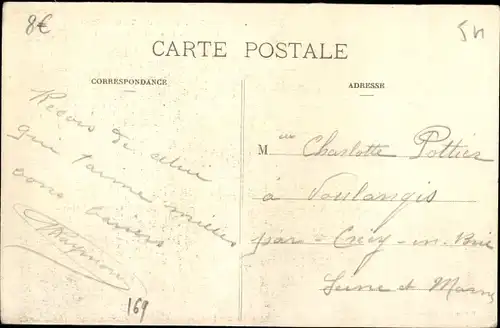 8€
5N
CARTE POSTALE
CORRESPONDANCE
ADRESSE
Reçois de celui
que t'aime milles
bons baisers
Raymon
Mlle Charlotte Pottier
à Voulangis
par = Crécy = en = Brie
Seine et Marne
169